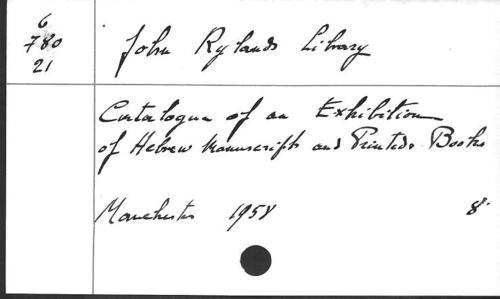 6
780
21
John Rylands Library
Catalogue of an Exhibition
of Hebrew Manuscripts and Printed Books
Manchester 1958 8°